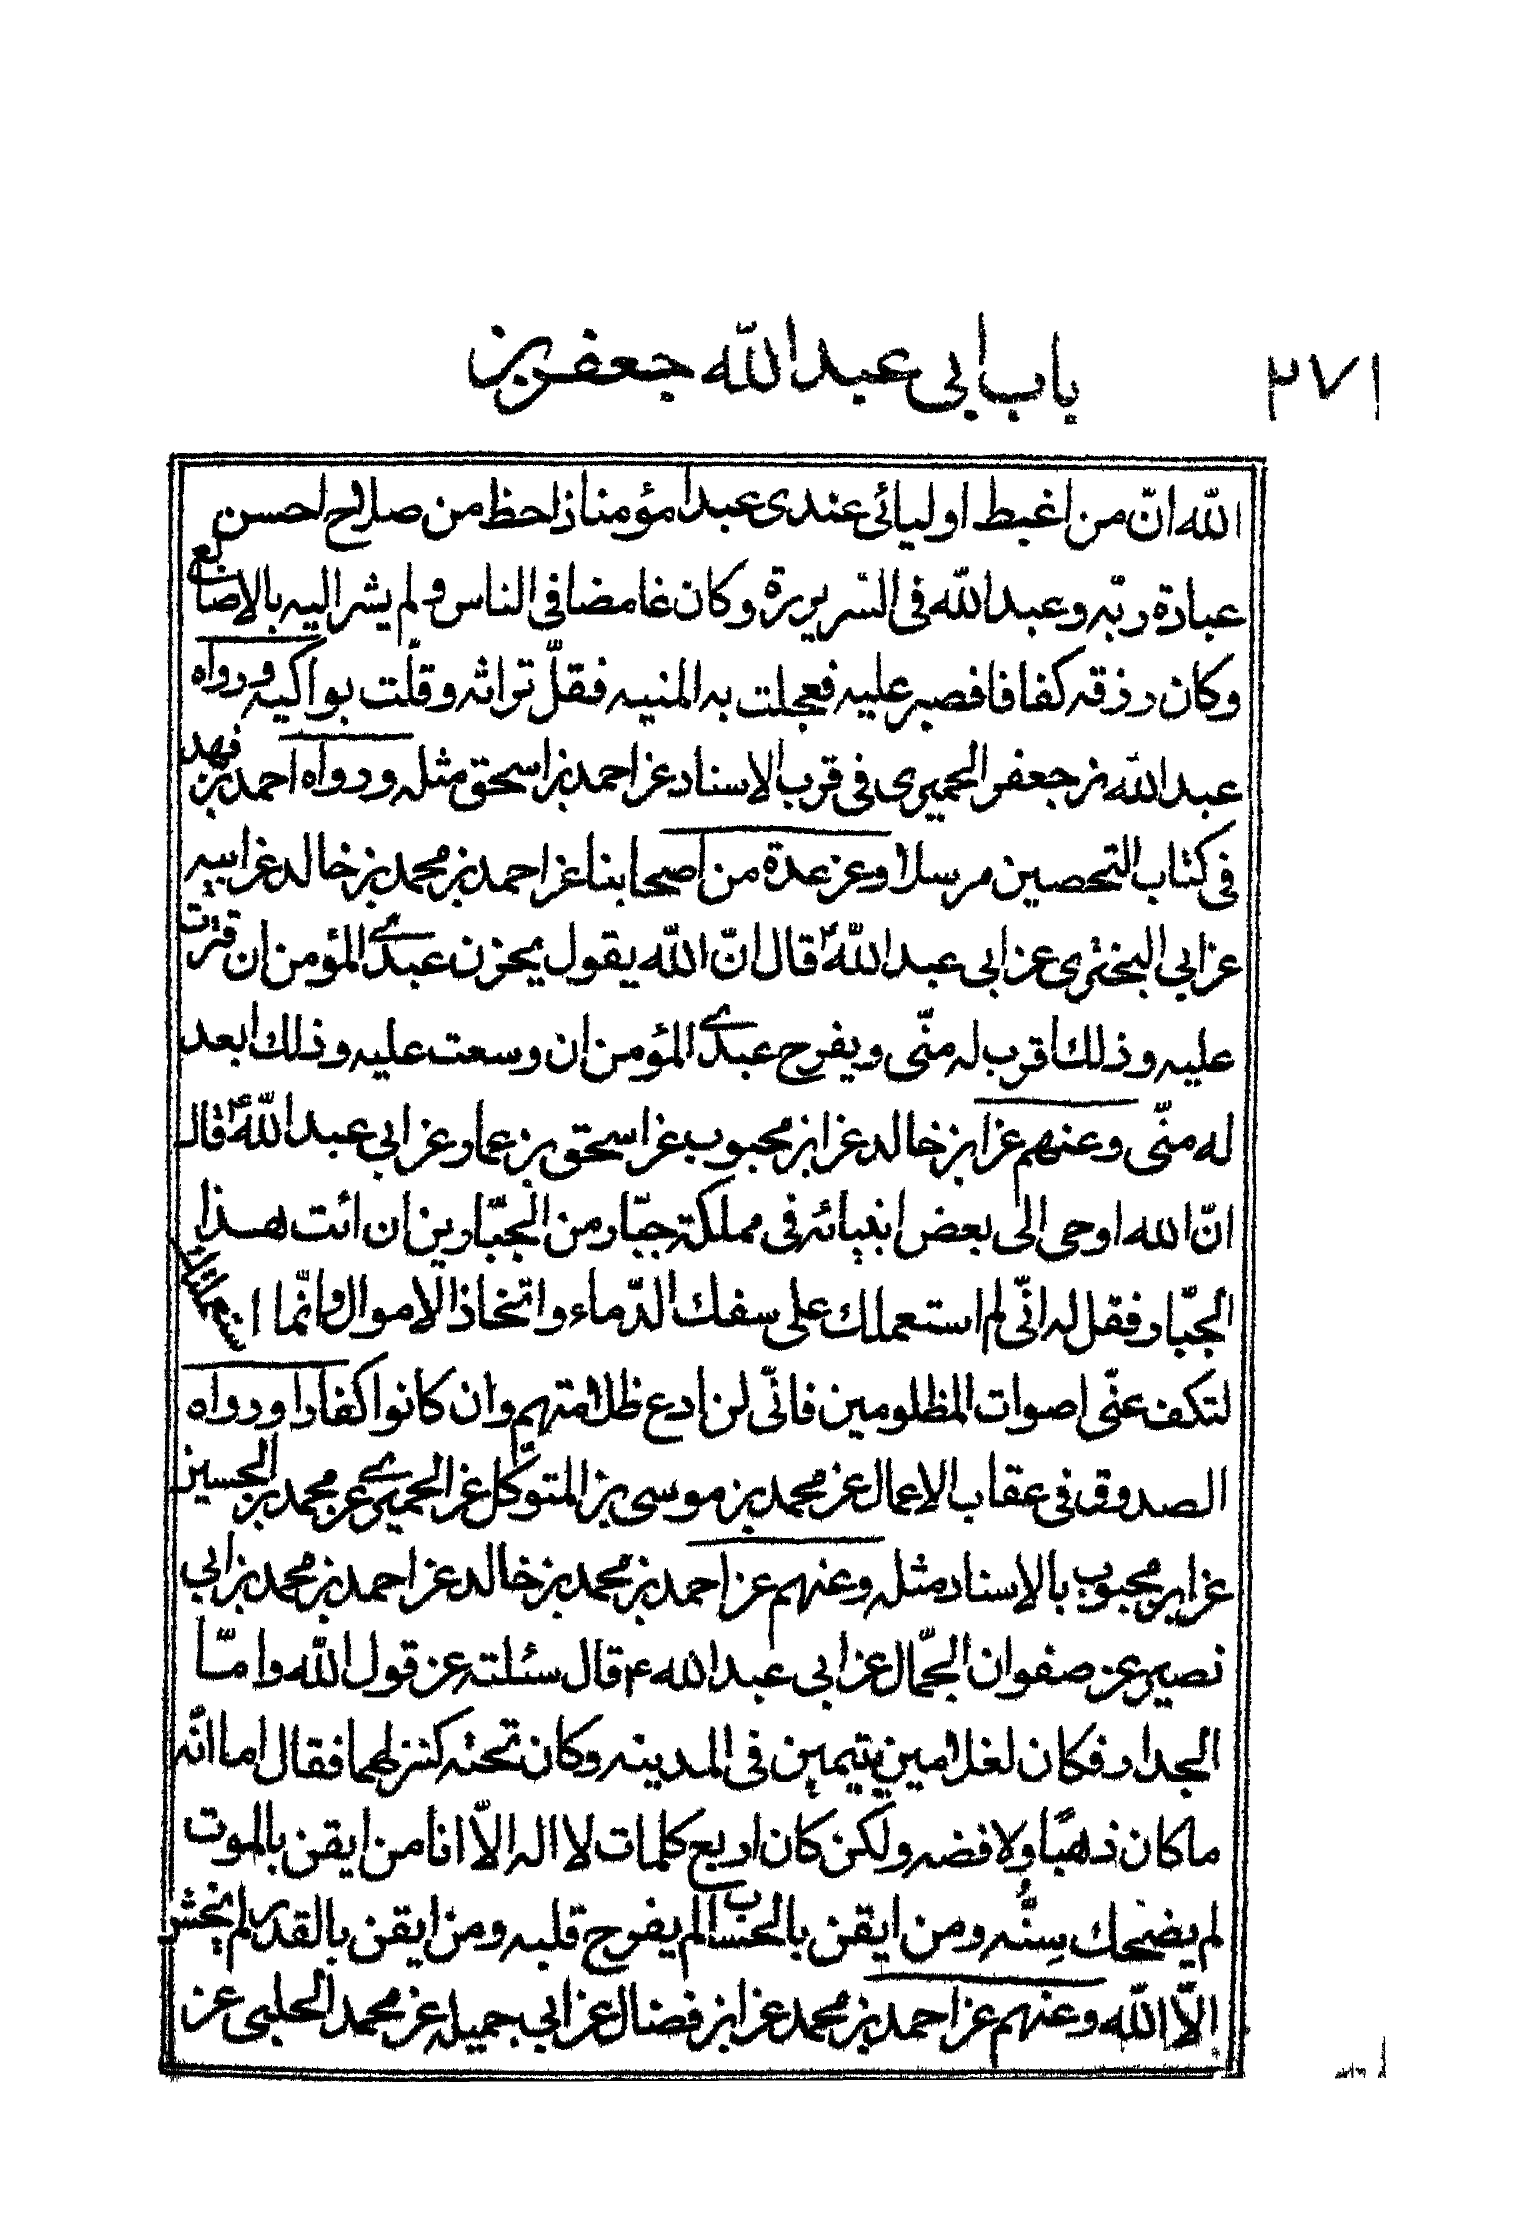 ٢٧١
باب ابى عبد الله جعفر بن
الله انّ من اغبط اوليائى عندى عبدا مؤمنا ذا حظ من صلاح احسن
عبادة ربّه وعبد الله فى السّريرة وكان غامضا فى الناس ولم يشر اليه بالاصابع
وكان رزقه كفافا فصبر عليه فعجلت به المنيه فقلّ تراثه وقلّت بواكيه ورواه
عبد الله بن جعفر الحميرى فى قرب الاسناد عن احمد بن اسحق مثله ورواه احمد بن فهد
فى كتاب التحصين مرسلا وعن عدة من اصحابنا عن احمد بن محمد بن خالد عن ابيه
عن ابى البخترى عن ابى عبد اللهؑ قال انّ الله يقول يحزن عبدى المؤمن ان قترت
عليه وذلك اقرب له منّى ويفرح عبدى المؤمن ان وسعت عليه وذلك ابعد
له منّى وعنهم عن ابن خالد عن ابن محبوب عن اسحق بن عمار عن ابى عبد اللهؑ قال
انّ الله اوحى الى بعض انبيائه فى مملكة جبّار من الجبّارين ان ائت هذا
الجبّار فقل له انّى لم استعملك على سفك الدّماء واتخاذ الاموال وانّما استعملتك
لتكف عنّى اصوات المظلومين فانّى لن ادع ظلامتهم وان كانوا كفارا ورواه
الصدوق فى عقاب الاعمال عن محمد بن موسى بن المتوكّل عن الحميرى عن محمد بن الحسين
عن ابن محبوب بالاسناد مثله وعنهم عن احمد بن محمد بن خالد عن احمد بن محمد بن ابى
نصير عن صفوان الجمّال عن ابى عبد الله ع قال سئلته عن قول الله وامّا
الجدار فكان لغلامين يتيمين فى المدينه وكان تحته كنز لهما فقال اما انّه
ماكان ذهبًا ولا فضه ولكن كان اربع كلمات لا اله الّا انا من ايقن بالموت
لم يضحك سِنُّه ومن ايقن بالحساب لم يفرح قلبه ومن ايقن بالقدر لم يخش
الّا الله وعنهم عن احمد بن محمد عن ابن فضال عن ابى جميله عن محمد الحلبى عن